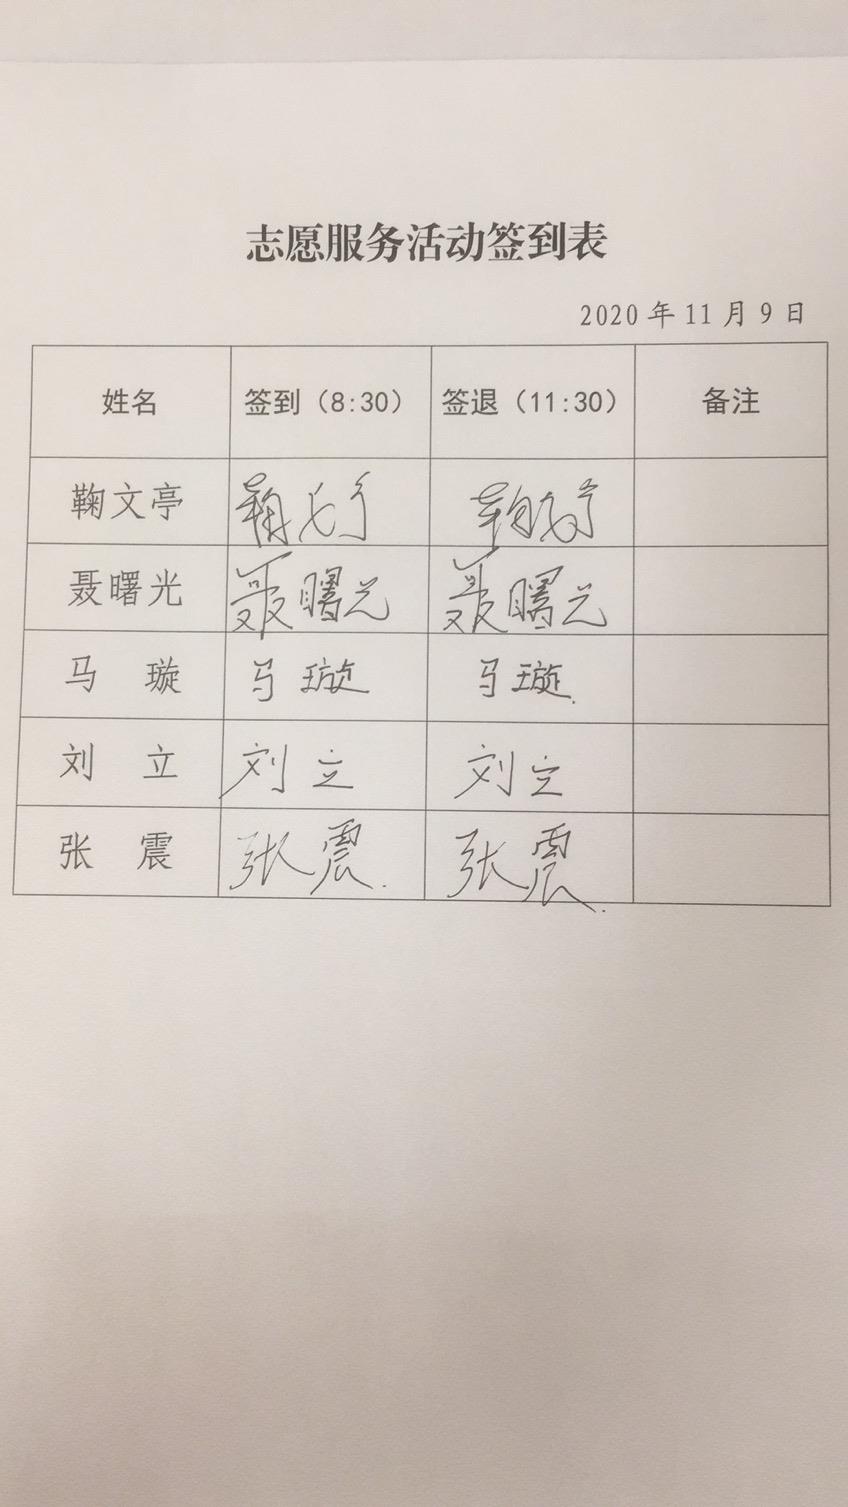 志愿服务活动签到表
2020年11月9日
姓名 签到（8:30） 签退（11:30） 备注
鞠文亭 鞠文亭 鞠文亭
聂曙光 聂曙光 聂曙光
马 璇 马璇 马璇.
刘 立 刘立 刘立
张 震 张震. 张震.